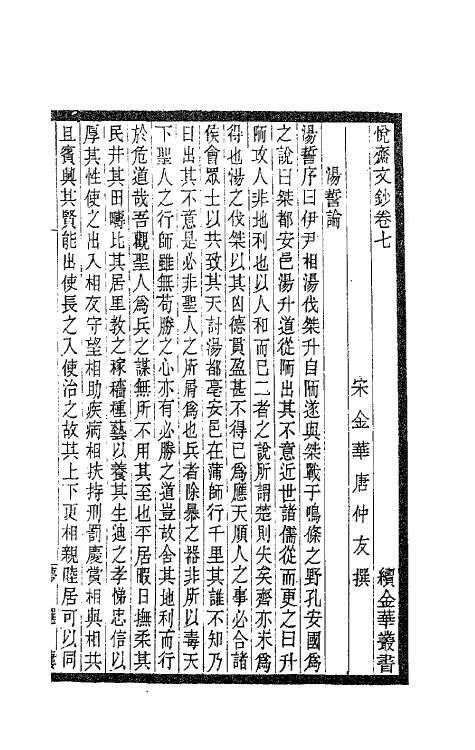 悅齋文鈔卷七
續金華叢書
宋金華唐仲友撰
湯誓論
湯誓序曰伊尹相湯伐桀升自陑遂與桀戰于鳴條之野孔安國爲
之說曰桀都安邑湯升道從陑出其不意近世諸儒從而更之曰升
陑攻人非地利也以人和而已二者之說所謂楚則失矣齊亦未爲
得也湯之伐桀以其凶德貫盈甚不得已爲應天順人之事必合諸
侯會眾士以共致其天討湯都亳安邑在蒲師行千里其誰不知乃
曰出其不意是必非聖人之所屑爲也兵者除暴之器非所以毒天
下聖人之行師雖無苟勝之心亦有必勝之道豈故舍其地利而行
於危道哉吾觀聖人爲兵之謀無所不用其至也平居暇日撫柔其
民井其田疇比其居里教之稼穡種藝以養其生迪之孝悌忠信以
厚其性使之出入相友守望相助疾病相扶持刑罰慶賞相與相共
且賓興其賢能出使長之入使治之故其上下更相親睦居可以同